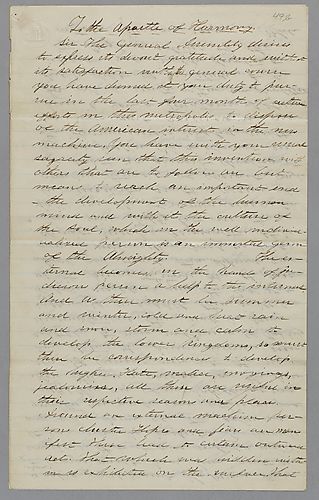 496
To the Apostle of Harmony.
Sir The General Assembly desires
to express its devout gratitude and
its satisfaction with the general course
you have deemed it your duty to pur-
sue in the last four months of active
efforts in this metropolis to dispose
of the American interest in the new
machine. You have with your usual
sagacity seen that this invention and
others that are to follow are but
means to reach an important end
- the development of the human
mind and with it the culture of
the soul, which in the well
person is an immortal germ
of the Almighty. The ex-
ternal becomes in the hands of ju-
dicious person a help to the internal
And so there must be summer
and winter, cold and heat rain
and snow, storm and calm to
develop the lower kingdoms, so must
there be correspondences to develop
the higher. Hate, malice, envyings,
jealousies, all these are useful in
their respective season and place.
Around an external machine per-
sons cluster Hopes and fears are man-
ifest These lead to certain outward
acts. That which was hidden with-
in is exhibited on the surface. That